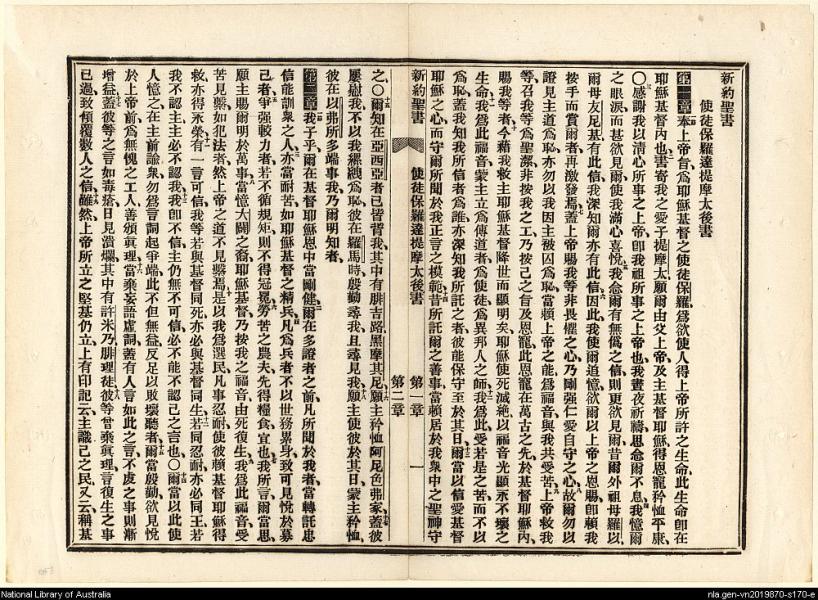 新約聖書
使徒保羅達提摩太後書
第一章奉上帝旨、爲耶穌基督之使徒保羅、爲欲使人得上帝所許之生命、此生命卽在
耶穌基督內也、書寄我之愛子提摩太、願爾由父上帝及主基督耶穌得恩寵矜恤平康、
〇感謝我以清心所事之上帝、卽我祖所事之上帝也、我晝夜祈禱、思念爾不息、我憶爾
之眼淚、而甚欲見爾、使我滿心喜悅、我念爾有無僞之信、則更欲見爾、昔爾外祖母羅以、
爾母友尼基有此信、我深知爾亦有此信、因此我使爾追憶、欲爾以上帝之恩賜、卽賴我
按手而賞爾者、再激發焉、蓋上帝賜我等、非畏懼之心、乃剛強仁愛自守之心、故爾勿以
證見主道爲恥、亦勿以我因主被囚爲恥、當賴上帝之能、爲福音與我共受苦、上帝救我
等、召我等爲聖潔、非按我之工、乃按己之旨及恩寵、此恩寵在萬古之先、於基督耶穌內、
賜我等者、今藉我救主耶穌基督降世而顯明矣、耶穌使死滅絕、以福音光顯永不壞之
生命、我爲此福音、蒙主立爲傳道者、爲使徒、爲異邦人之師、我爲此受若是之苦、而不以
爲恥、蓋我知我所信者爲誰、亦深知我所託之者、彼能保守至於其日、爾當以信愛基督
耶穌之心、而守爾所聞於我正言之模範、昔所託爾之善事、當賴居於我衆中之聖神守
新約聖書 使徒保羅達提摩太後書 第一章 第二章 一
之、〇爾知在亞西亞者已皆背我、其中有腓吉路黑摩其尼、願主矜恤阿尼色弗家、蓋彼
屢慰我、不以我縲絏爲恥、彼在羅馬時、殷勤尋我、且尋見我、願主使彼於其日、蒙主矜恤、
彼在以弗所多端事我、乃爾明知者、
第二章我子乎、爾在基督耶穌恩中當剛健、爾在多證者之前、凡所聞於我者、當轉託忠
信能訓衆之人、亦當耐苦、如耶穌基督之精兵、凡爲兵者、不以世務累身、致可見悅於募
己者、爭强較力者、若不循規矩、則不得冠冕、勞苦之農夫、先得糧食宜也、我所言爾當思、
願主賜爾明於萬事、當憶大闢之裔耶穌基督、乃按我之福音、由死復生、我爲此福音受
苦、見縶如犯法者然、上帝之道不見縶焉、是以我爲選民、凡事忍耐、使彼賴基督耶穌得
救、亦得永榮、有一言可信、我等若與基督同死、亦必與基督同生、若同忍耐、亦必同王、若
我不認主、主必不認我、我卽不信、主仍無不可信、必不能不認己之言也、〇爾當以此使
人憶之、在主前諭衆、勿爲言詞起爭端、此不但無益、反足以敗壞聽者、爾當殷勤、欲見悅
於上帝前、爲無愧之工人、善頒眞理、當棄妄語虛詞、蓋有人言如此之言、不虔之事則漸
增益、蓋彼等之言如毒瘡日見潰爛、其中有許米乃腓理徒、彼等曾棄眞理、言復生之事
已過、致傾覆數人之信、雖然、上帝所立之堅基仍立、上有印記云、主識己之民、又云、稱基
National Library of Australia
nla.gen-vn2019870-s170-e